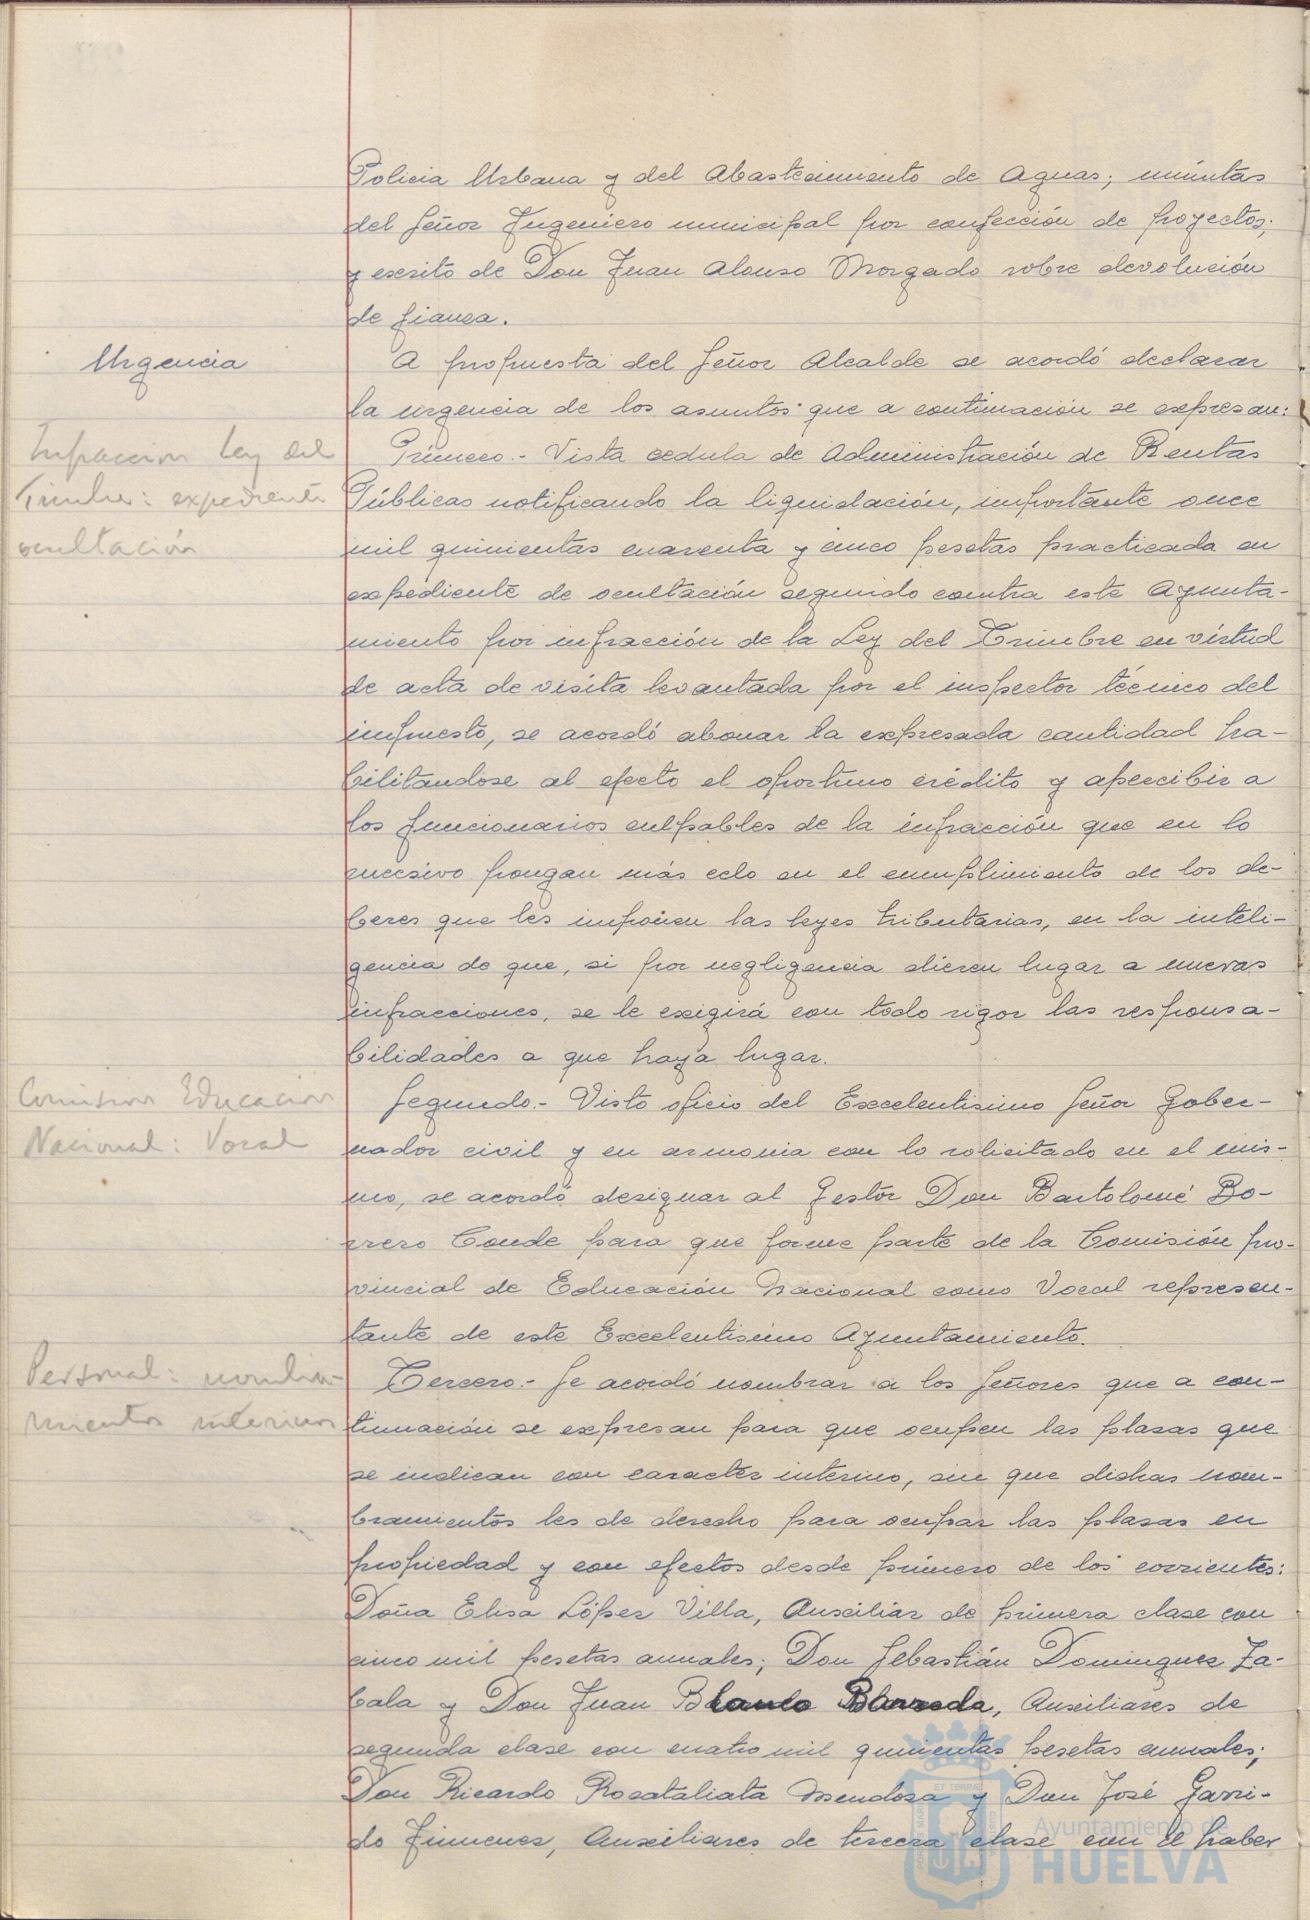 Policia Urbana y del Abastecimiento de Aguas; minutas
del Señor Ingeniero municipal por confección de proyectos;
y escrito de Don Juan Alonso Morgado sobre devolución
de fianza.
Urgencia
A propuesta del Señor Alcalde se acordó declarar
la urgencia de los asuntos que a continuación se expresan:
Infraccion Ley del
Timbre: expediente
ocultación
Primero.- Vista cedula de Administración de Rentas
Públicas notificando la liquidación, importante once
mil quinientas cuarenta y cinco pesetas practicada en
expediente de ocultación seguido contra este Ayunta-
miento por infracción de la Ley del Timbre en virtud
de acta de visita levantada por el inspector técnico del
impuesto, se acordó abonar la expresada cantidad ha-
bilitandose al efecto el oportuno crédito y apercibir a
los funcionarios culpables de la infracción que en lo
sucesivo pongan más celo en el cumplimiento de los de-
beres que les imponen las leyes tributarias, en la inteli-
gencia de que, si por negligencia dieren lugar a nuevas
infracciones, se le exigirá con todo rigor las responsa-
bilidades a que haya lugar.
Comision Educacion
Nacional: Vocal
Segundo.- Visto oficio del Excelentisimo Señor Gober-
nador civil y en armonia con lo solicitado en el mis-
mo, se acordó designar al Gestor Don Bartolomé Bo-
rrero Conde para que forme parte de la Comisión pro-
vincial de Educación Nacional como Vocal represen-
tante de este Excelentisimo Ayuntamiento.
Personal: nombra-
mientos interinos
Tercero.- Se acordó nombrar a los Señores que a con-
tinuación se expresan para que ocupen las plazas que
se indican con caracter interino, sin que dichas nom-
bramientos les de derecho para ocupar las plazas en
propiedad y con efectos desde primero de los corrientes:
Doña Elisa López Villa, Auxiliar de primera clase con
cinco mil pesetas anuales; Don Sebastián Dominguez Za-
bala y Don Juan Blanco Barreda, Auxiliares de
segunda clase con cuatro mil quinientas pesetas anuales;
Don Ricardo Rocataliata Mendoza y Don José Garri-
do Jimenez, Auxiliares de tercera clase con el haber
Ayuntamiento de
HUELVA